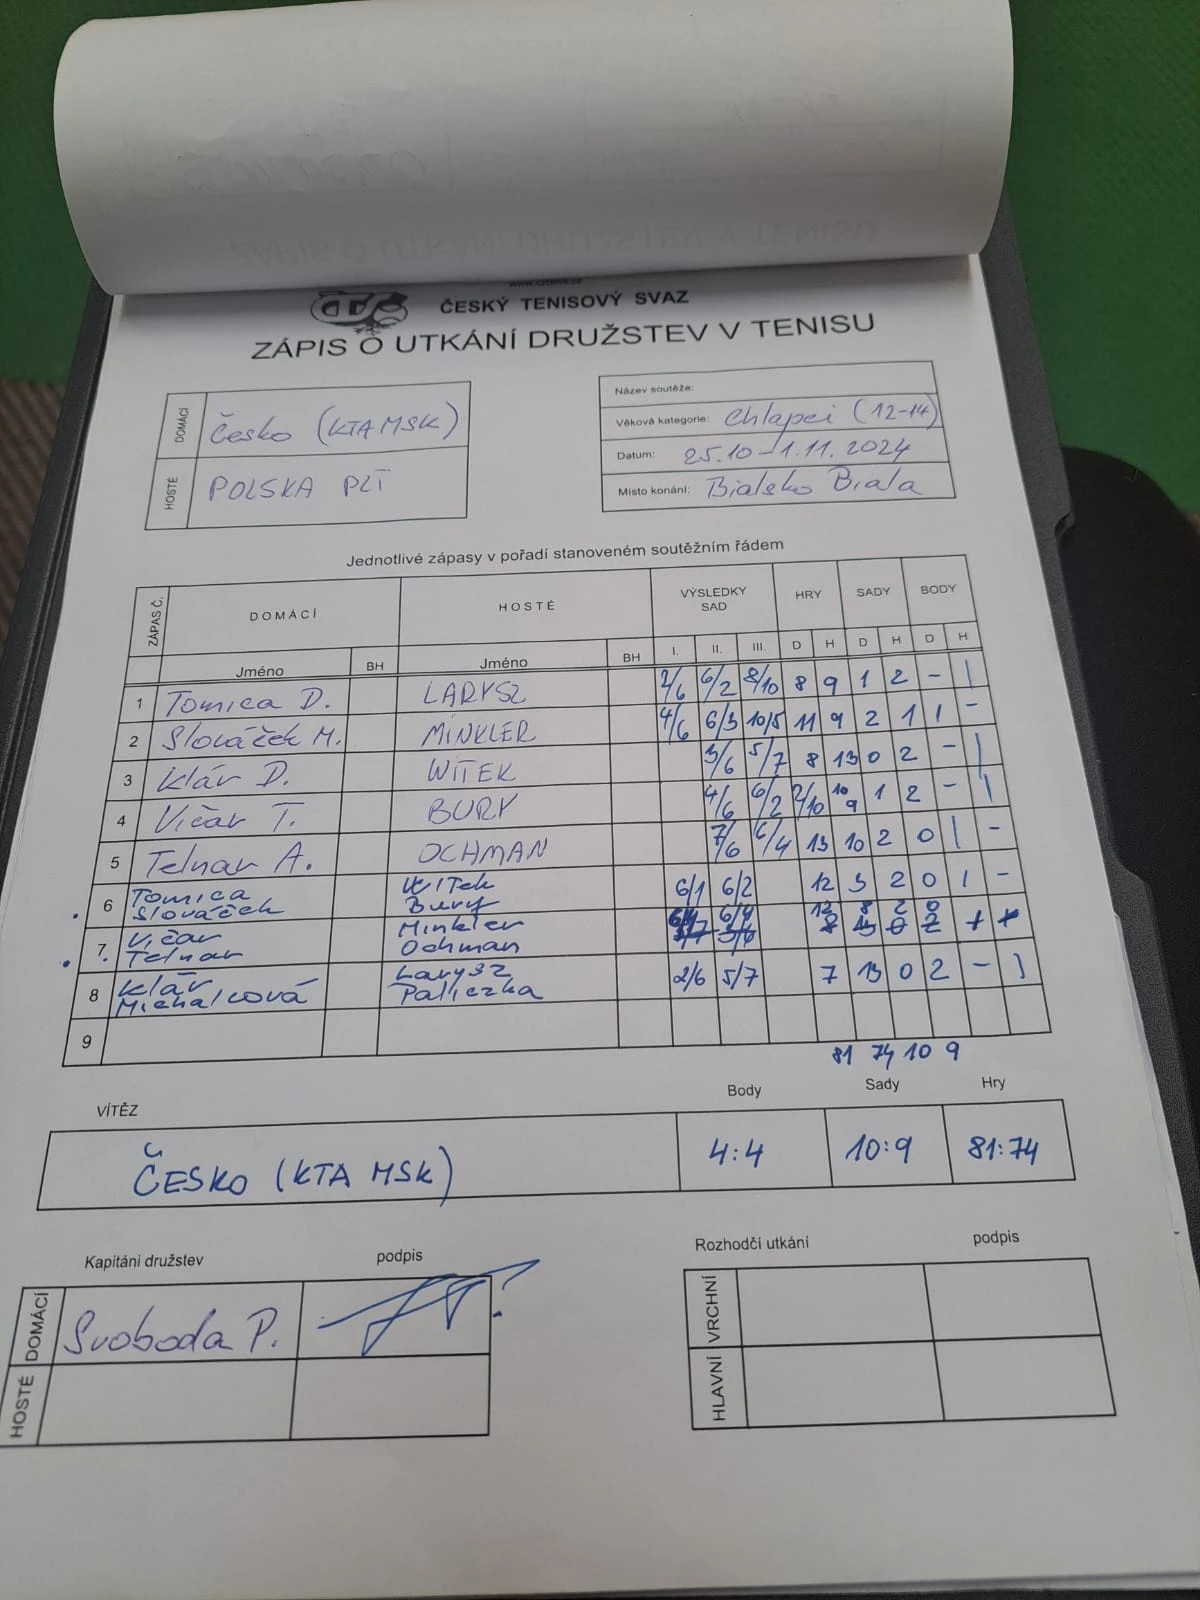 ČESKÝ TENISOVÝ SVAZ
ZÁPIS O UTKÁNÍ DRUŽSTEV V TENISU
DOMÁCÍ Česko (KTA MSK)
HOSTÉ POLSKA PZT
Název soutěže:
Věková kategorie: Chlapci (12-14)
Datum: 25.10 - 1.11. 2024
Místo konání: Bialsko Biala
Jednotlivé zápasy v pořadí stanoveném soutěžním řádem
ZÁPAS Č. DOMÁCÍ HOSTÉ VÝSLEDKY SAD HRY SADY BODY
Jméno BH Jméno BH I. II. III. D H D H D H
1 Tomica D. LARYSZ 2/6 6/2 8/10 8 9 1 2 - 1
2 Slováček M. MINKLER 4/6 6/3 10/5 11 9 2 1 1 -
3 Klár D. WITEK 3/6 5/7 8 13 0 2 - 1
4 Vičar T. BURY 4/6 6/2 2/10 10 9 1 2 - 1
5 Telnar A. OCHMAN 7/6 6/4 13 10 2 0 1 -
6 Tomica Slováček Witek Bury 6/1 6/2 12 3 2 0 1 -
7. Vičar Telnar Minkler Ochman 6/4 6/4 12 8 2 0
8 Klár Michalcová Larysz Paliczka 2/6 5/7 7 13 0 2 - 1
9
81 74 10 9
VÍTĚZ Body Sady Hry
ČESKO (KTA MSK) 4:4 10:9 81:74
Kapitáni družstev podpis
DOMÁCÍ Svoboda P.
HOSTÉ
Rozhodčí utkání podpis
VRCHNÍ
HLAVNÍ